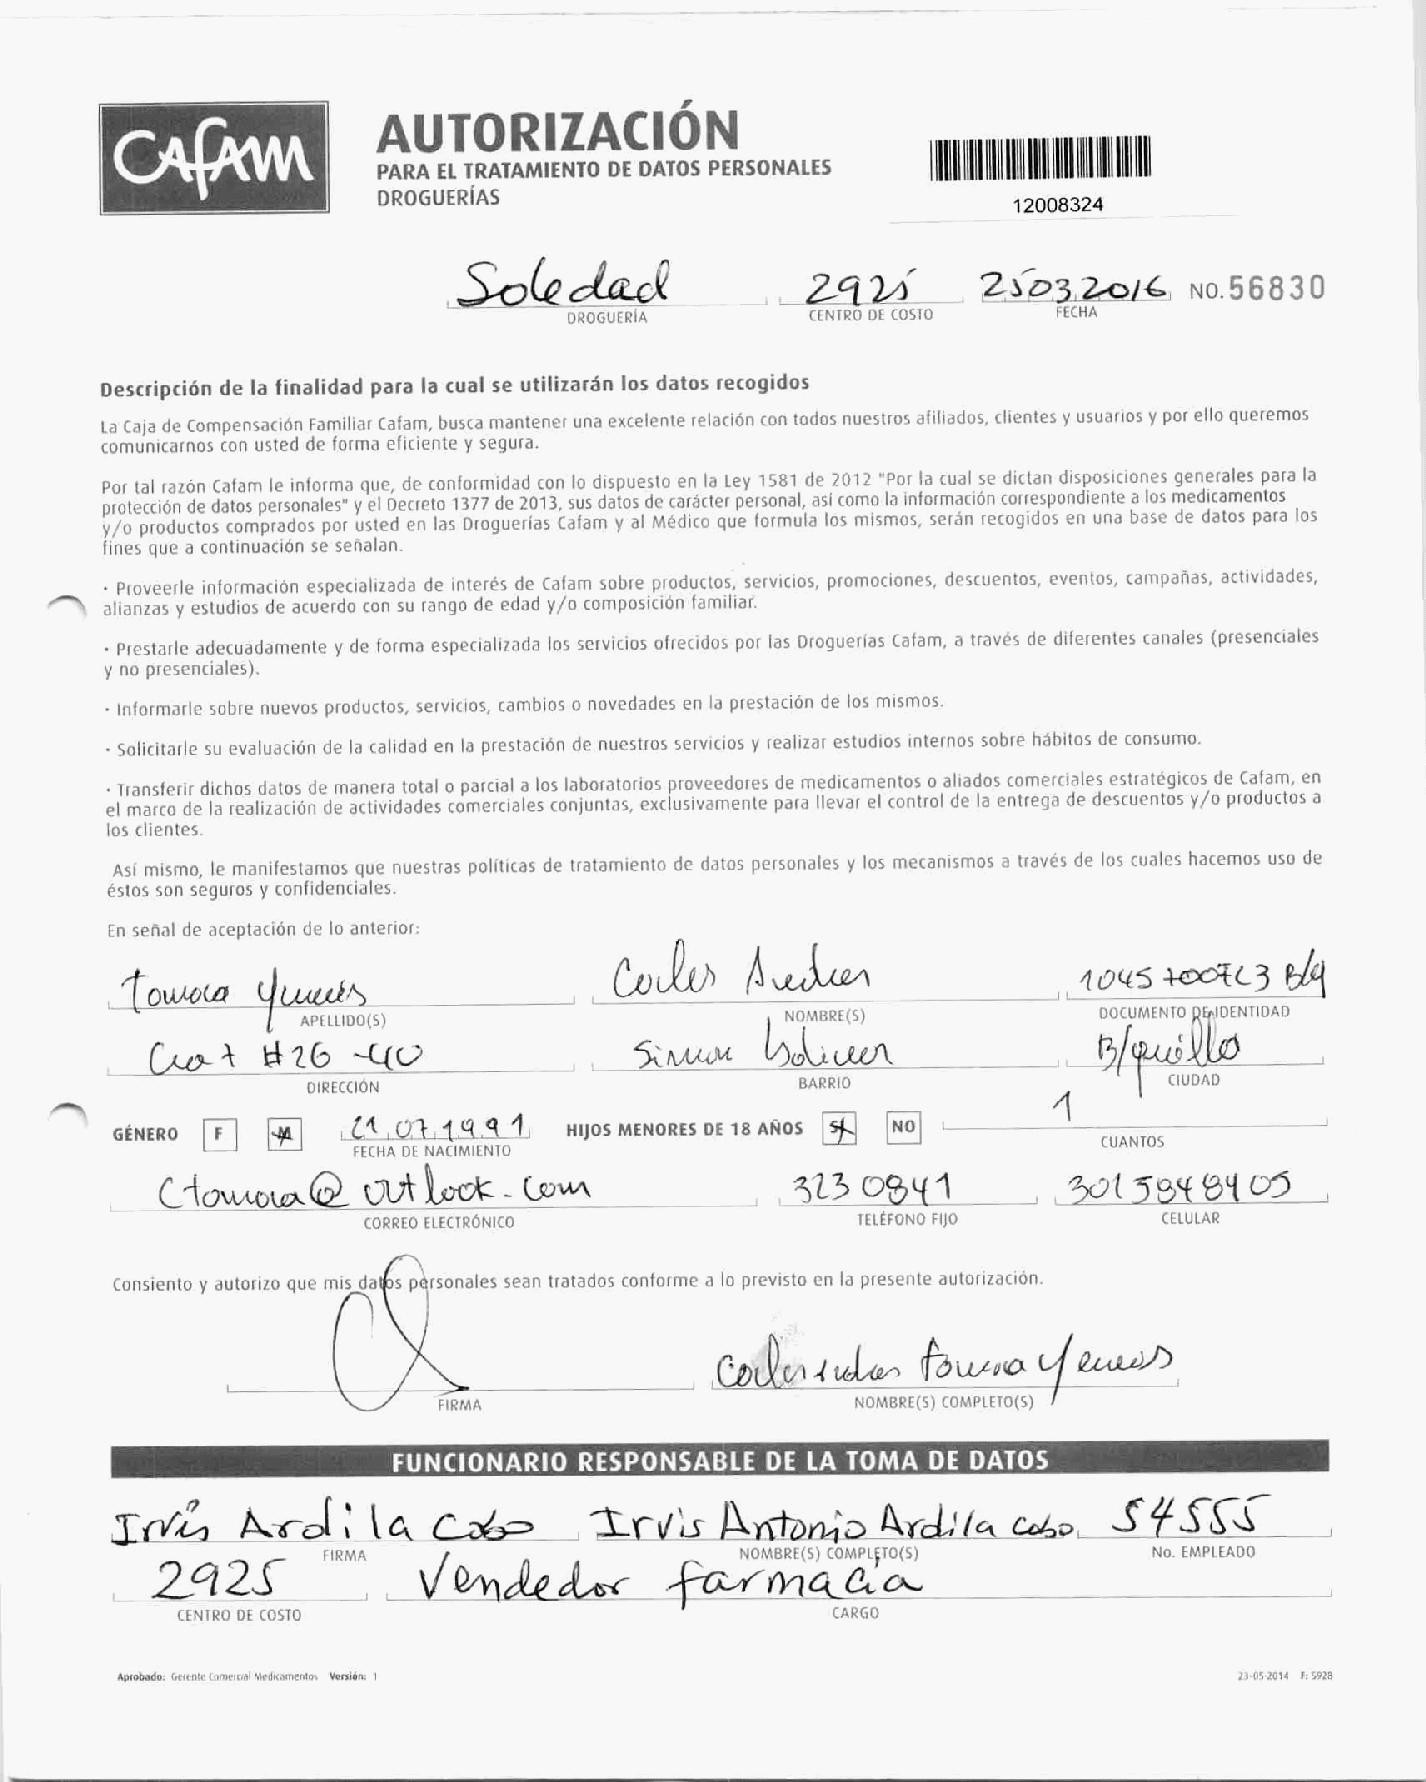 CAFAM
AUTORIZACIÓN
PARA EL TRATAMIENTO DE DATOS PERSONALES
DROGUERÍAS
12008324
Soledad 2925 25032016 NO. 56830
DROGUERÍA CENTRO DE COSTO FECHA
Descripción de la finalidad para la cual se utilizarán los datos recogidos
La Caja de Compensación Familiar Cafam, busca mantener una excelente relación con todos nuestros afiliados, clientes y usuarios y por ello queremos
comunicarnos con usted de forma eficiente y segura.
Por tal razón Cafam le informa que, de conformidad con lo dispuesto en la Ley 1581 de 2012 "Por la cual se dictan disposiciones generales para la
protección de datos personales" y el Decreto 1377 de 2013, sus datos de carácter personal, así como la información correspondiente a los medicamentos
y/o productos comprados por usted en las Droguerías Cafam y al Médico que formula los mismos, serán recogidos en una base de datos para los
fines que a continuación se señalan.
· Proveerle información especializada de interés de Cafam sobre productos, servicios, promociones, descuentos, eventos, campañas, actividades,
alianzas y estudios de acuerdo con su rango de edad y/o composición familiar.
· Prestarle adecuadamente y de forma especializada los servicios ofrecidos por las Droguerías Cafam, a través de diferentes canales (presenciales
y no presenciales).
· Informarle sobre nuevos productos, servicios, cambios o novedades en la prestación de los mismos.
· Solicitarle su evaluación de la calidad en la prestación de nuestros servicios y realizar estudios internos sobre hábitos de consumo.
· Transferir dichos datos de manera total o parcial a los laboratorios proveedores de medicamentos o aliados comerciales estratégicos de Cafam, en
el marco de la realización de actividades comerciales conjuntas, exclusivamente para llevar el control de la entrega de descuentos y/o productos a
los clientes.
Así mismo, le manifestamos que nuestras políticas de tratamiento de datos personales y los mecanismos a través de los cuales hacemos uso de
éstos son seguros y confidenciales.
En señal de aceptación de lo anterior:
Tamara Yenes B/q
APELLIDO(S) NOMBRE(S) DOCUMENTO DE IDENTIDAD
#26-40 Simon Bolivar B/quilla
DIRECCIÓN BARRIO CIUDAD
GÉNERO F M 21.07.1991 HIJOS MENORES DE 18 AÑOS SI NO 1
FECHA DE NACIMIENTO CUANTOS
Ctamara@outlook.com 3230841 3015848405
CORREO ELECTRÓNICO TELÉFONO FIJO CELULAR
Consiento y autorizo que mis datos personales sean tratados conforme a lo previsto en la presente autorización.
Tamara Yenes
FIRMA NOMBRE(S) COMPLETO(S)
FUNCIONARIO RESPONSABLE DE LA TOMA DE DATOS
Irvis Ardila Cobo Irvis Antonio Ardila cobo 54555
FIRMA NOMBRE(S) COMPLETO(S) No. EMPLEADO
2925 Vendedor farmacia
CENTRO DE COSTO CARGO
Aprobado: Gerente Comercial Medicamentos Versión: 1 23-05-2014 F: 5928